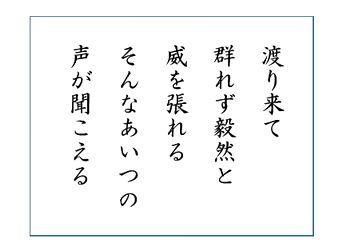 渡り来て
群れず毅然と
威を張れる
そんなあいつの
声が聞こえる